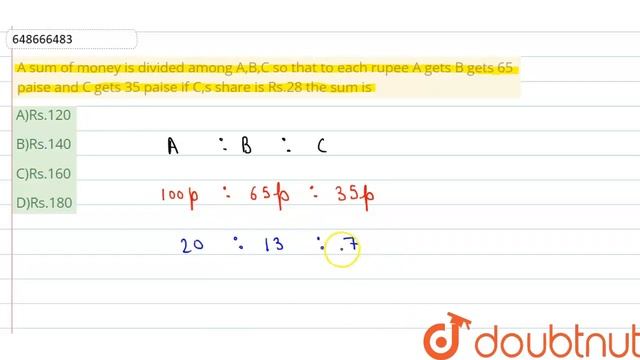 648666483
A sum of money is divided among A,B,C so that to each rupee A gets B gets 65
paise and C gets 35 paise if C,s share is Rs.28 the sum is
A)Rs.120
B)Rs.140
C)Rs.160
D)Rs.180
A : B : C
100p : 65p : 35p
20 : 13 : .7
doubtnut